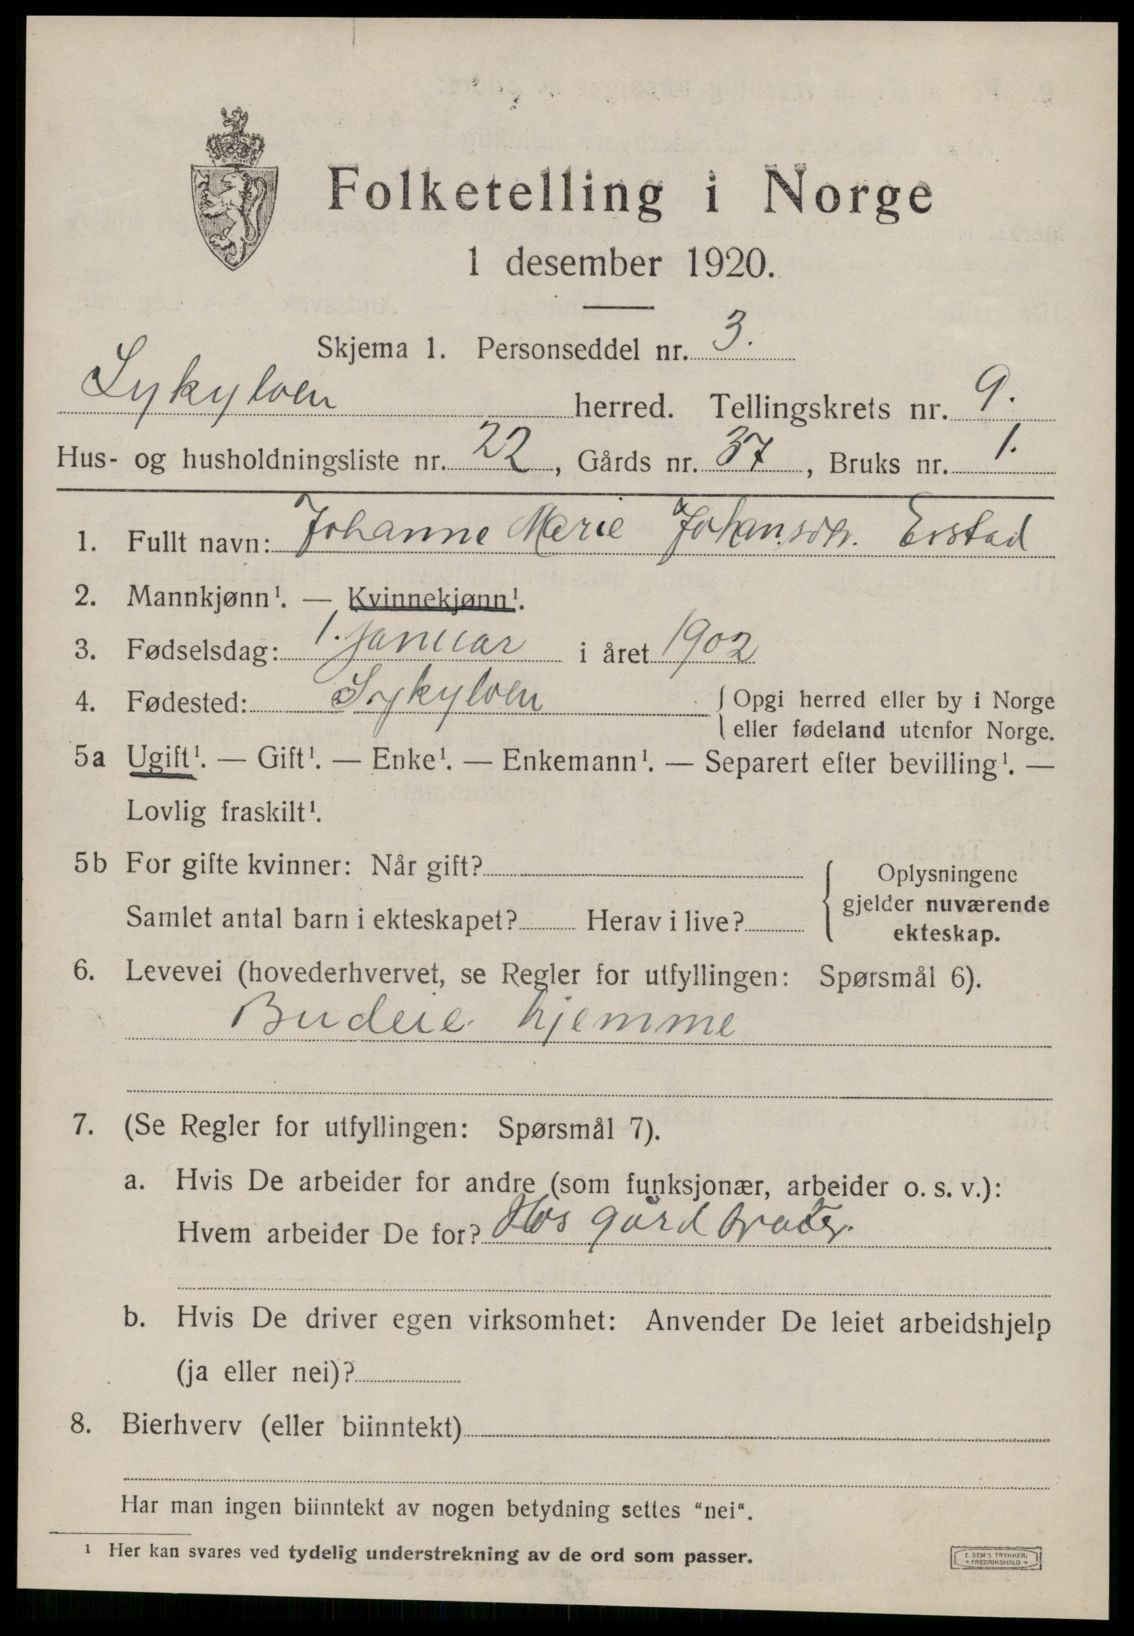 Folketelling i Norge
1 desember 1920.
Skjema 1. Personseddel nr. 3.
Sykylven herred. Tellingskrets nr. 9.
Hus- og husholdningsliste nr. 22, Gårds nr. 37, Bruks nr. 1.
1. Fullt navn: Johanne Marie Johansdtr. Erstad
2. Mannkjønn¹. — Kvinnekjønn¹.
3. Fødselsdag: 1. januar i året 1902
4. Fødested: Sykylven { Opgi herred eller by i Norge
eller fødeland utenfor Norge.
5a Ugift¹. — Gift¹. — Enke¹. — Enkemann¹. — Separert efter bevilling¹. —
Lovlig fraskilt¹.
5b For gifte kvinner: Når gift?
Samlet antal barn i ekteskapet? Herav i live?
{ Oplysningene
gjelder nuværende
ekteskap.
6. Levevei (hovederhvervet, se Regler for utfyllingen: Spørsmål 6).
Budeie hjemme
7. (Se Regler for utfyllingen: Spørsmål 7).
a. Hvis De arbeider for andre (som funksjonær, arbeider o. s. v.):
Hvem arbeider De for? Hos gård
b. Hvis De driver egen virksomhet: Anvender De leiet arbeidshjelp
(ja eller nei)?
8. Bierhverv (eller biinntekt)
Har man ingen biinntekt av nogen betydning settes "nei".
¹ Her kan svares ved tydelig understrekning av de ord som passer.
E. SEM'S TRYKKERI
FREDRIKSHALD